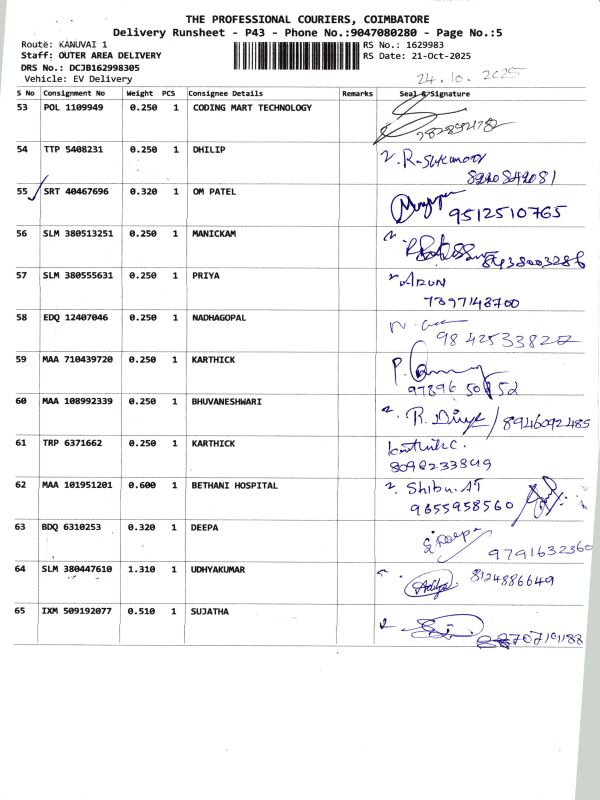 THE PROFESSIONAL COURIERS, COIMBATORE
Delivery Runsheet - P43 - Phone No.:9047080280 - Page No.:5
Route: KANUVAI 1 RS No.: 1629983
Staff: OUTER AREA DELIVERY RS Date: 21-Oct-2025
DRS No.: DCJB162998305
Vehicle: EV Delivery 24.10.2025
S No Consignment No Weight PCS Consignee Details Remarks Seal & Signature
53 POL 1109949 0.250 1 CODING MART TECHNOLOGY
54 TTP 5408231 0.250 1 DHILIP
55 SRT 40467696 0.320 1 OM PATEL
9512510765
56 SLM 380513251 0.250 1 MANICKAM
57 SLM 380555631 0.250 1 PRIYA
ARUN
7397148700
58 EDQ 12407046 0.250 1 NADHAGOPAL
59 MAA 710439720 0.250 1 KARTHICK
60 MAA 108992339 0.250 1 BHUVANESHWARI
R. Divya / 8946092485
61 TRP 6371662 0.250 1 KARTHICK
62 MAA 101951201 0.600 1 BETHANI HOSPITAL
Shibu.AT
9655958560
63 BDQ 6310253 0.320 1 DEEPA
9791632360
64 SLM 380447610 1.310 1 UDHYAKUMAR
8124886649
65 IXM 509192077 0.510 1 SUJATHA